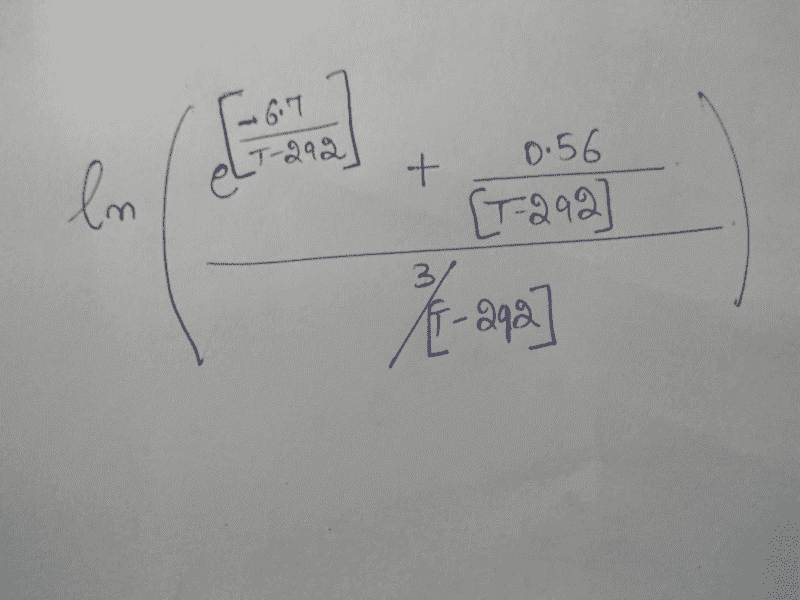 ln ( e^[-6.7 / T-292] + 0.56 / [T-292]
3/[T-292] )